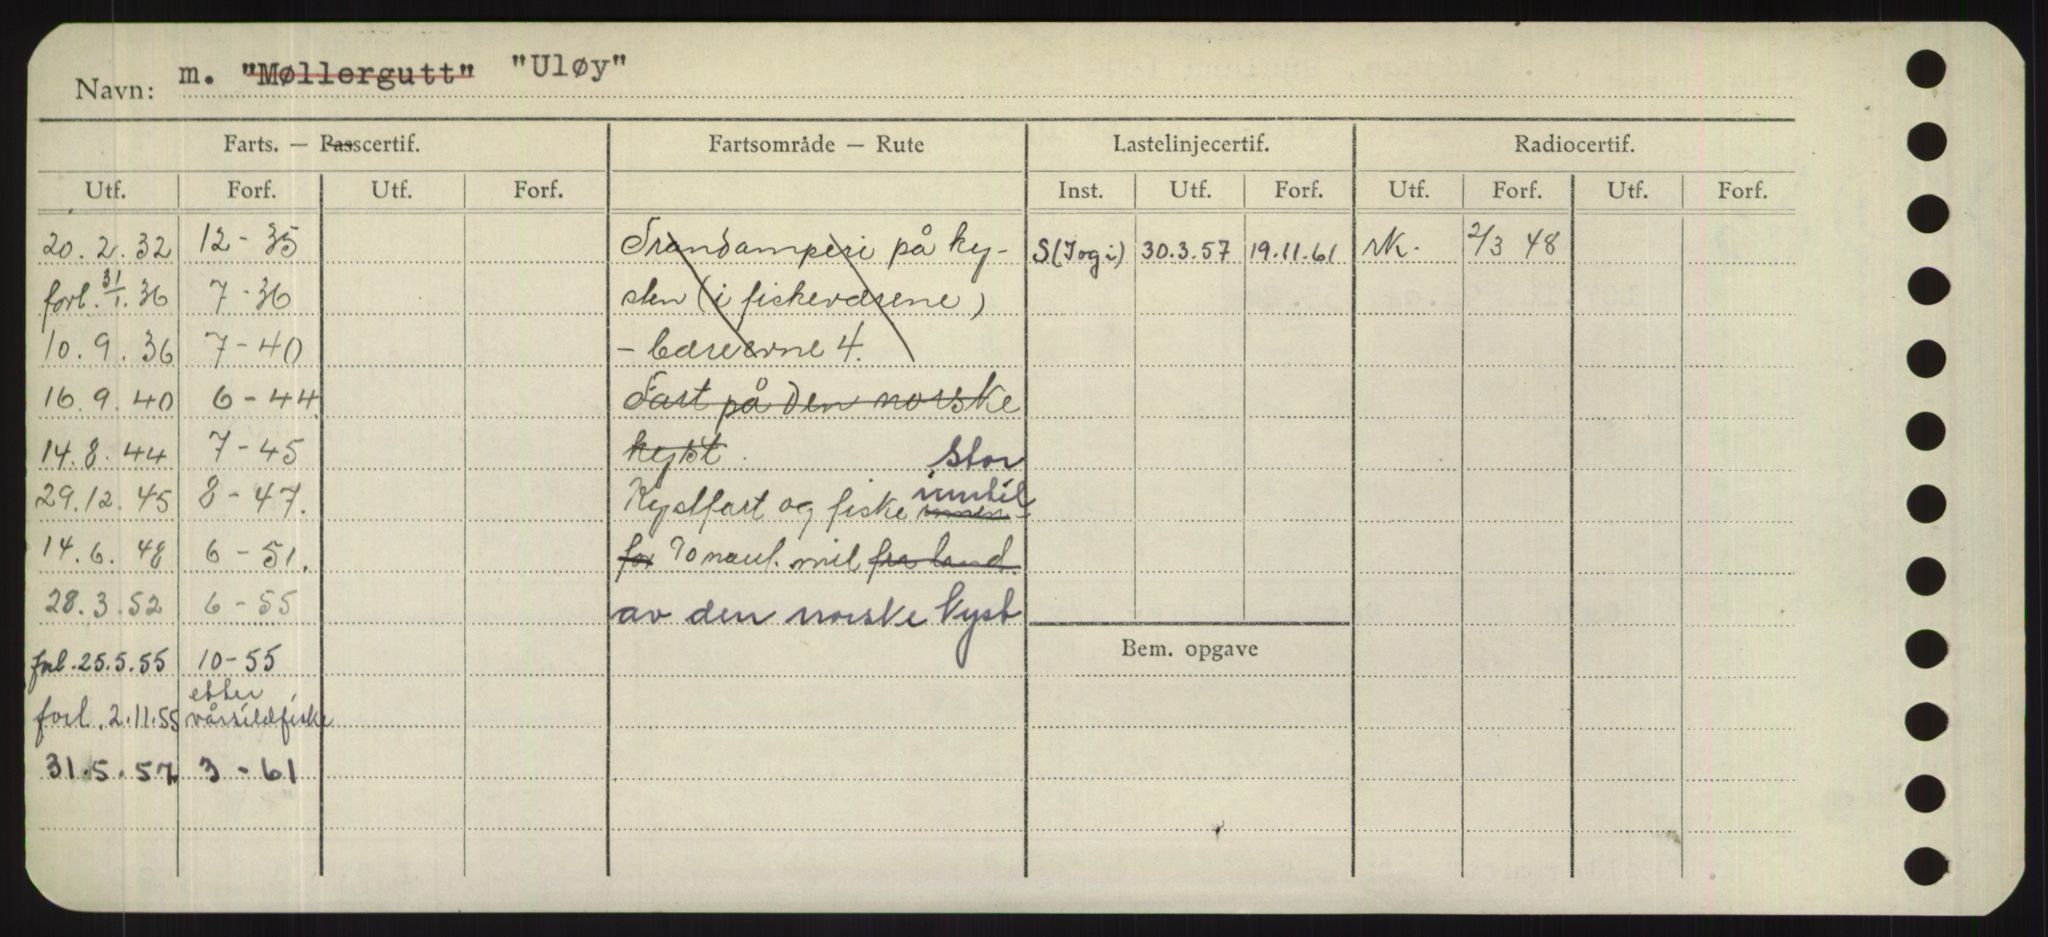 Navn: m. "Møllergutt" "Uløy"
Farts. — Passcertif. Fartsområde — Rute Lastelinjecertif. Radiocertif.
Utf. Forf. Utf. Forf. Inst. Utf. Forf. Utf. Forf. Utf. Forf.
20.2.32 12-35 Trandamperi på ky- S(Tog i) 30.3.57 19.11.61 NK. 2/3 48
forl. 31/1. 36 7-36 sten (i fiskeværene)
10.9.36 7-40 - bæreevne 4.
16.9.40 6-44 Fart på den norske
14.8.44 7-45 kyst. stor
29.12.45 8-47. Kystfart og fiske inntil innen-
14.6.48 6-51. for 70 naut. mil fra land.
28.3.52 6-55 av den norske kyst
forl. 25.5.55 10-55 Bem. opgave
forl. 2.11.55 etter vårsildfiske
31.5.57 3-61